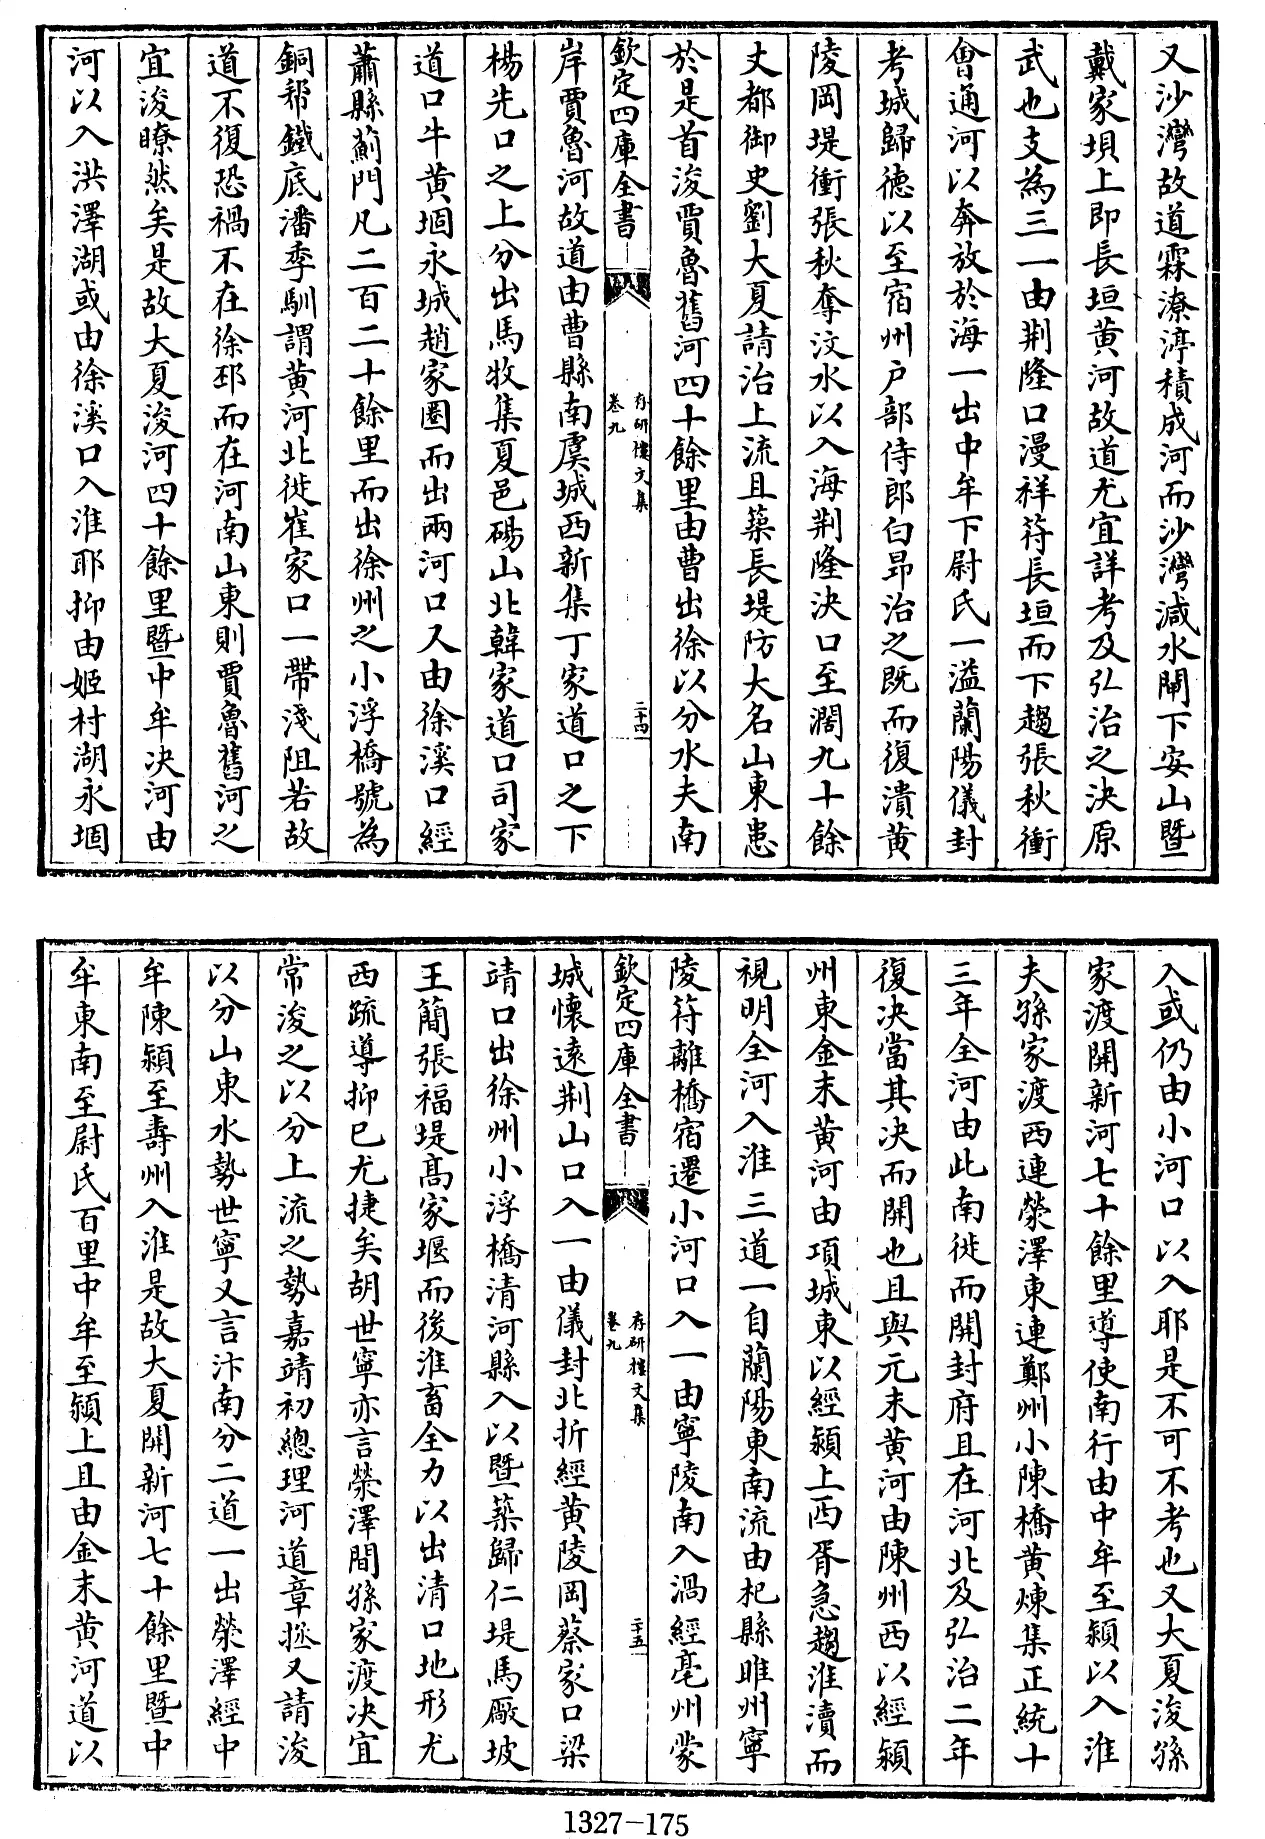 又沙灣故道霖潦渟積成河而沙灣減水閘下安山暨
戴家埧上即長垣黄河故道尤宜詳考及弘治之決原
武也支為三一由荆隆口漫祥符長垣而下趨張秋衝
㑹通河以奔放於海一出中牟下尉氏一溢蘭陽儀封
考城歸徳以至宿州户部侍郎白昻治之既而復潰黄
陵岡堤衝張秋奪汶水以入海荆隆決口至濶九十餘
丈都御史劉大夏請治上流且築長堤防大名山東患
於是首浚賈魯舊河四十餘里由曹出徐以分水夫南
欽定四庫全書
存研樓文集
卷九
二十四
岸賈魯河故道由曹縣南虞城西新集丁家道口之下
楊先口之上分出馬牧集夏邑碭山北韓家道口司家
道口牛黄堌永城趙家圏而出兩河口又由徐溪口經
蕭縣薊門凡二百二十餘里而出徐州之小浮橋號為
銅帮鐵底潘季馴謂黄河北徙崔家口一帶淺阻若故
道不復恐禍不在徐邳而在河南山東則賈魯舊河之
宜浚瞭然矣是故大夏浚河四十餘里暨中牟决河由
河以入洪澤湖或由徐溪口入淮耶抑由姬村湖永堌
入或仍由小河口以入耶是不可不考也又大夏浚孫
家渡開新河七十餘里導使南行由中牟至潁以入淮
夫孫家渡西連滎澤東連鄭州小陳橋黄煉集正統十
三年全河由此南徙而開封府且在河北及弘治二年
復决當其决而開也且與元末黄河由陳州西以經潁
州東金末黄河由項城東以經潁上西胥急趨淮瀆而
視明全河入淮三道一自蘭陽東南流由杞縣睢州寧
陵符離橋宿遷小河口入一由寧陵南入渦經亳州蒙
欽定四庫全書
存研樓文集
卷九
二十五
城懷遠荆山口入一由儀封北折經黄陵岡蔡家口梁
靖口出徐州小浮橋清河縣入以暨築歸仁堤馬廠坡
王簡張福堤髙家堰而後淮畜全力以出清口地形尤
西疏導抑已尤捷矣胡世寧亦言滎澤間孫家渡决宜
常浚之以分上流之勢嘉靖初總理河道章拯又請浚
以分山東水勢世寧又言汴南分二道一出滎澤經中
牟陳潁至壽州入淮是故大夏開新河七十餘里暨中
牟東南至尉氏百里中牟至潁上且由金末黄河道以
1327-175